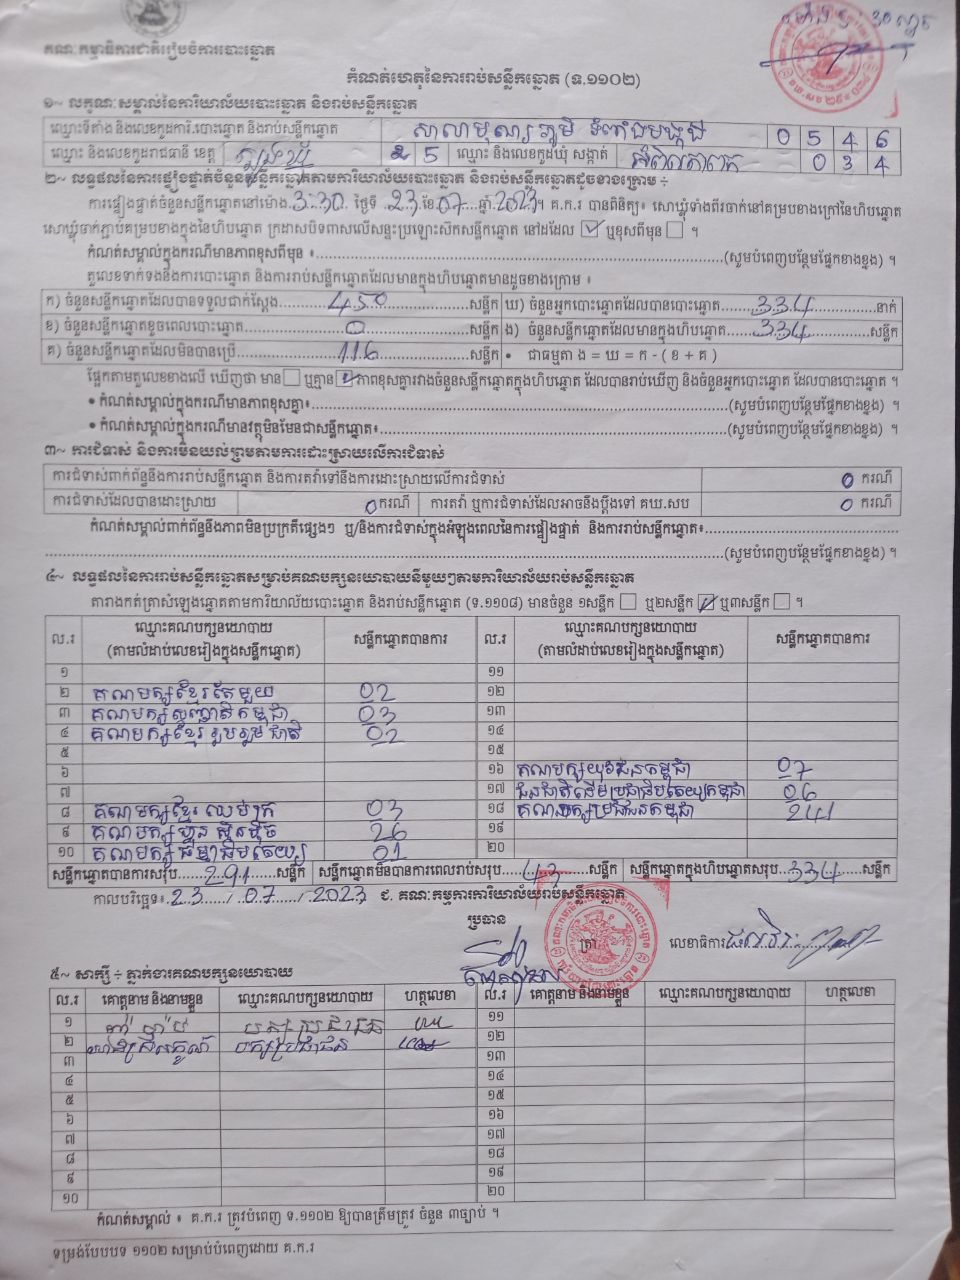 គណៈកម្មាធិការជាតិរៀបចំការបោះឆ្នោត
កំណត់ហេតុនៃការរាប់សន្លឹកឆ្នោត (ទ.១១០២)
១~ លក្ខណៈសម្គាល់នៃការិយាល័យបោះឆ្នោត និងរាប់សន្លឹកឆ្នោត
ឈ្មោះទីតាំង និងលេខកូដការិ.បោះឆ្នោត និងរាប់សន្លឹកឆ្នោត 0 5 4 6
ឈ្មោះ និងលេខកូដរាជធានី ខេត្ត 2 5 ឈ្មោះ និងលេខកូដឃុំ សង្កាត់ 0 3 4
២~ លទ្ធផលនៃការផ្ទៀងផ្ទាត់ចំនួនសន្លឹកឆ្នោតតាមការិយាល័យបោះឆ្នោត និងរាប់សន្លឹកឆ្នោតដូចខាងក្រោម ÷
ការផ្ទៀងផ្ទាត់ចំនួនសន្លឹកឆ្នោតនៅម៉ោង 3:30 ថ្ងៃទី 23 ខែ 07 ឆ្នាំ 2023។ គ.ក.រ បានពិនិត្យ៖ សោឃ្លុំទាំងពីរចាក់នៅគម្របខាងក្រៅនៃហិបឆ្នោត
សោឃ្លុំចាក់ភ្ជាប់គម្របខាងក្នុងនៃហិបឆ្នោត ក្រដាសបិទពាសលើសន្ទះប្រឡោះស៊កសន្លឹកឆ្នោត នៅដដែល ☑ ឬខុសពីមុន ☐ ។
កំណត់សម្គាល់ក្នុងករណីមានភាពខុសពីមុន ៖ (សូមបំពេញបន្ថែមផ្នែកខាងខ្នង) ។
តួលេខទាក់ទងនឹងការបោះឆ្នោត និងការរាប់សន្លឹកឆ្នោតដែលមានក្នុងហិបឆ្នោតមានដូចខាងក្រោម ៖
ក) ចំនួនសន្លឹកឆ្នោតដែលបានទទួលជាក់ស្តែង 450 សន្លឹក ឃ) ចំនួនអ្នកបោះឆ្នោតដែលបានបោះឆ្នោត 334 នាក់
ខ) ចំនួនសន្លឹកឆ្នោតខូចពេលបោះឆ្នោត 0 សន្លឹក ង) ចំនួនសន្លឹកឆ្នោតដែលមានក្នុងហិបឆ្នោត 334 សន្លឹក
គ) ចំនួនសន្លឹកឆ្នោតដែលមិនបានប្រើ 116 សន្លឹក • ជាធម្មតា ង = ឃ = ក - ( ខ + គ )
ផ្អែកតាមតួលេខខាងលើ ឃើញថា មាន ☐ ឬគ្មាន ☑ ភាពខុសគ្នារវាងចំនួនសន្លឹកឆ្នោតក្នុងហិបឆ្នោត ដែលបានរាប់ឃើញ និងចំនួនអ្នកបោះឆ្នោត ដែលបានបោះឆ្នោត ។
• កំណត់សម្គាល់ក្នុងករណីមានភាពខុសគ្នា៖ (សូមបំពេញបន្ថែមផ្នែកខាងខ្នង) ។
• កំណត់សម្គាល់ក្នុងករណីមានវត្ថុមិនមែនជាសន្លឹកឆ្នោត៖ (សូមបំពេញបន្ថែមផ្នែកខាងខ្នង) ។
៣~ ការជំទាស់ និងការមិនយល់ព្រមតាមការដោះស្រាយលើការជំទាស់
ការជំទាស់ពាក់ព័ន្ធនឹងការរាប់សន្លឹកឆ្នោត និងការតវ៉ាទៅនឹងការដោះស្រាយលើការជំទាស់ 0 ករណី
ការជំទាស់ដែលបានដោះស្រាយ 0 ករណី ការតវ៉ា ឬការជំទាស់ដែលអាចនឹងប្តឹងទៅ គឃ.សប 0 ករណី
កំណត់សម្គាល់ពាក់ព័ន្ធនឹងភាពមិនប្រក្រតីផ្សេងៗ ឬ/និងការជំទាស់ក្នុងអំឡុងពេលនៃការផ្ទៀងផ្ទាត់ និងការរាប់សន្លឹកឆ្នោត៖
(សូមបំពេញបន្ថែមផ្នែកខាងខ្នង) ។
៤~ លទ្ធផលនៃការរាប់សន្លឹកឆ្នោតសម្រាប់គណបក្សនយោបាយនីមួយៗតាមការិយាល័យរាប់សន្លឹកឆ្នោត
តារាងកត់ត្រាសំឡេងឆ្នោតតាមការិយាល័យបោះឆ្នោត និងរាប់សន្លឹកឆ្នោត (ទ.១១០៨) មានចំនួន ១សន្លឹក ☐ ឬ២សន្លឹក ☑ ឬ៣សន្លឹក ☐ ។
ល.រ ឈ្មោះគណបក្សនយោបាយ (តាមលំដាប់លេខរៀងក្នុងសន្លឹកឆ្នោត) សន្លឹកឆ្នោតបានការ ល.រ ឈ្មោះគណបក្សនយោបាយ (តាមលំដាប់លេខរៀងក្នុងសន្លឹកឆ្នោត) សន្លឹកឆ្នោតបានការ
១ ១១
២ គណបក្សខ្មែរតែមួយ 02 ១២
៣ គណបក្ស 03 ១៣
៤ គណបក្សខ្មែររួបរួមជាតិ 02 ១៤
៥ ១៥
៦ ១៦ គណបក្សយុវជនកម្ពុជា 07
៧ ១៧ 06
៨ គណបក្សខ្មែរឈប់ក្រ 03 ១៨ គណបក្សប្រជាជនកម្ពុជា 241
៩ គណបក្សហ្វ៊ុនស៊ិនប៉ិច 26 ១៩
១០ គណបក្សធម្មាធិបតេយ្យ 01 ២០
សន្លឹកឆ្នោតបានការសរុប 291 សន្លឹក សន្លឹកឆ្នោតមិនបានការពេលរាប់សរុប 43 សន្លឹក សន្លឹកឆ្នោតក្នុងហិបឆ្នោតសរុប 334 សន្លឹក
កាលបរិច្ឆេទ៖ 23 / 07 / 2023 ជ. គណៈកម្មការការិយាល័យរាប់សន្លឹកឆ្នោត
ប្រធាន
ត្រា
លេខាធិការ
៥~ សាក្សី ÷ ភ្នាក់ងារគណបក្សនយោបាយ
ល.រ គោត្តនាម និងនាមខ្លួន ឈ្មោះគណបក្សនយោបាយ ហត្ថលេខា ល.រ គោត្តនាម និងនាមខ្លួន ឈ្មោះគណបក្សនយោបាយ ហត្ថលេខា
១ បក្សប្រជាជន ១១
២ បក្សប្រជាជន ១២
៣ ១៣
៤ ១៤
៥ ១៥
៦ ១៦
៧ ១៧
៨ ១៨
៩ ១៩
១០ ២០
កំណត់សម្គាល់ ៖ គ.ក.រ ត្រូវបំពេញ ទ.១១០២ ឱ្យបានត្រឹមត្រូវ ចំនួន ៣ច្បាប់ ។
ទម្រង់បែបបទ ១១០២ សម្រាប់បំពេញដោយ គ.ក.រ